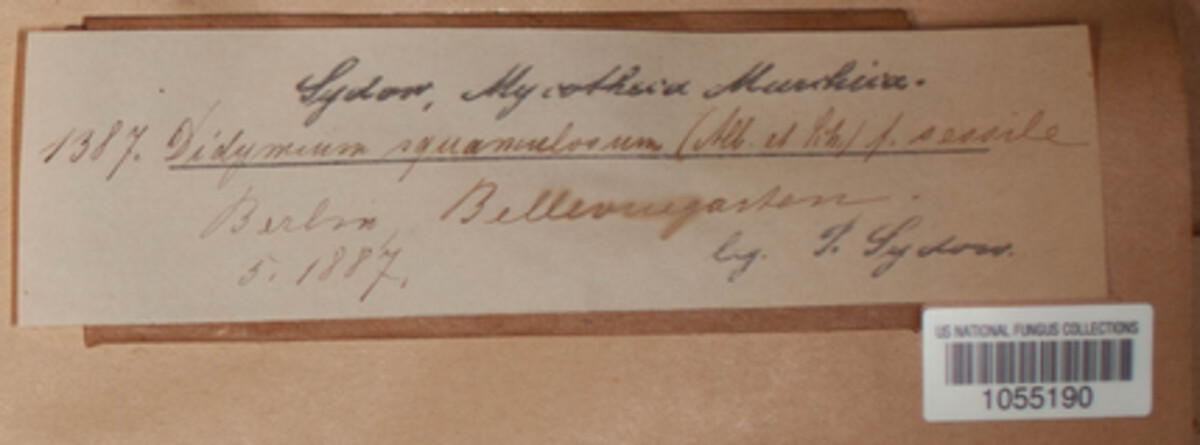 Sydow, Mycotheca Marchica.
1387. Didymium squamulosum (Alb. et Sch.) f. sessile
Berlin, Bellevuegarten.
5. 1887.
leg. P. Sydow.
US NATIONAL FUNGUS COLLECTIONS
1055190